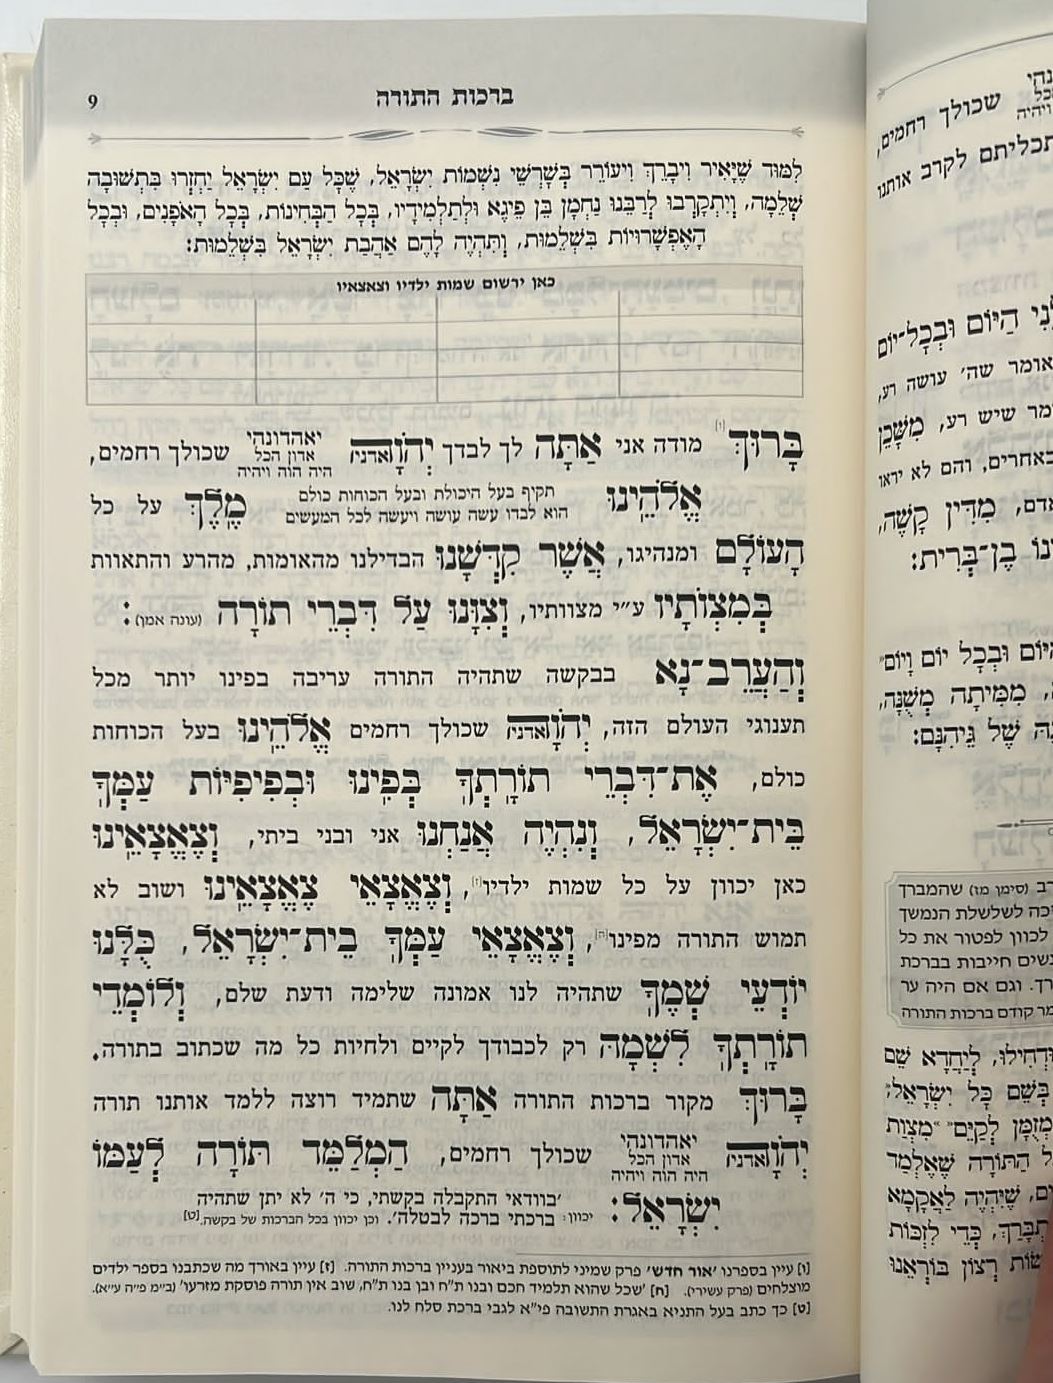 ברכות התורה
9
לִמּוּד שֶׁיָּאִיר וִיבָרֵךְ וִיעוֹרֵר בְּשָׁרְשֵׁי נִשְׁמוֹת יִשְׂרָאֵל, שֶׁכָּל עַם יִשְׂרָאֵל יַחְזְרוּ בִּתְשׁוּבָה
שְׁלֵמָה, וְיִתְקָרְבוּ לְרַבֵּנוּ נַחְמָן בֶּן פֵיגֶא וּלְתַלְמִידָיו, בְּכָל הַבְּחִינוֹת, בְּכָל הָאֳפָנִים, וּבְכָל
הָאֶפְשָׁרוּיוֹת בִּשְׁלֵמוּת, וְתִהְיֶה לָהֶם אַהֲבַת יִשְׂרָאֵל בִּשְׁלֵמוּת:
כאן ירשום שמות ילדיו וצאצאיו
בָּרוּךְ [ו] מודה אני אַתָּה לך לבדך יְהֹוָה יאהדונהי אדון הכל היה הוה ויהיה שכולך רחמים,
אֱלֹהֵינוּ תקיף בעל היכולת ובעל הכוחות כולם הוא לבדו עשה עושה ויעשה לכל המעשים מֶלֶךְ על כל
הָעוֹלָם ומנהיגו, אֲשֶׁר קִדְּשָׁנוּ הבדילנו מהאומות, מהרע והתאוות
בְּמִצְוֹתָיו ע״י מצוותיו, וְצִוָּנוּ עַל דִּבְרֵי תוֹרָה (עונה אמן):
וְהַעֲרֶב־נָא בבקשה שתהיה התורה עריבה בפינו יותר מכל
תענוגי העולם הזה, יְהֹוָה שכולך רחמים אֱלֹהֵינוּ בעל הכוחות
כולם, אֶת־דִּבְרֵי תוֹרָתְךָ בְּפִינוּ וּבְפִיפִיּוֹת עַמְּךָ
בֵּית־יִשְׂרָאֵל, וְנִהְיֶה אֲנַחְנוּ אני ובני ביתי, וְצֶאֱצָאֵינוּ
כאן יכוון על כל שמות ילדיו[ז], וְצֶאֱצָאֵי צֶאֱצָאֵינוּ ושוב לא
תמוש התורה מפינו[ח], וְצֶאֱצָאֵי עַמְּךָ בֵּית־יִשְׂרָאֵל, כֻּלָּנוּ
יוֹדְעֵי שְׁמֶךָ שתהיה לנו אמונה שלימה ודעת שלם, וְלוֹמְדֵי
תוֹרָתְךָ לִשְׁמָהּ רק לכבודך לקיים ולחיות כל מה שכתוב בתורה.
בָּרוּךְ מקור ברכות התורה אַתָּה שתמיד רוצה ללמד אותנו תורה
יְהֹוָה יאהדונהי אדון הכל היה הוה ויהיה שכולך רחמים, הַמְלַמֵּד תּוֹרָה לְעַמּוֹ
יִשְׂרָאֵל: יכוון: ׳בוודאי התקבלה בקשתי, כי ה׳ לא יתן שתהיה
ברכתי ברכה לבטלה׳. וכן יכוון בכל הברכות של בקשה.[ט]
[ו] עיין בספרנו ׳אור חדש׳ פרק שמיני לתוספת ביאור בעניין ברכות התורה. [ז] עיין באורך מה שכתבנו בספר ילדים
מוצלחים (פרק עשירי). [ח] ׳שכל שהוא תלמיד חכם ובנו ת״ח ובן בנו ת״ח, שוב אין תורה פוסקת מזרעו׳ (ב״מ פ״ה ע״א).
[ט] כך כתב בעל התניא באגרת התשובה פי״א לגבי ברכת סלח לנו.
שכולך רחמים,
תכליתם לקרב אותנו
הַיּוֹם וּבְכָל־יוֹם
אומר שה׳ עושה רע,
שיש רע, מִשָּׁכֵן
באחרים, והם לא יראו
מִדִּין קָשֶׁה,
בֶּן־בְּרִית:
וּבְכָל יוֹם וָיוֹם
מִמִּיתָה מְשֻׁנָּה,
שֶׁל גֵּיהִנָּם:
(סימן מז) שהמברך
לשלשלת הנמשך
לכוון לפטור את כל
חייבות בברכת
וגם אם היה ער
קודם ברכות התורה
וּדְחִילוּ, לְיַחֲדָא שֵׁם
בְּשֵׁם כָּל יִשְׂרָאֵל;
מְזֻמָּן לְקַיֵּם מִצְוַת
הַתּוֹרָה שֶׁאֶלְמַד
שֶׁיִּהְיֶה לְאָקָמָא
כְּדֵי לִזְכּוֹת
רְצוֹן בּוֹרְאֵנוּ